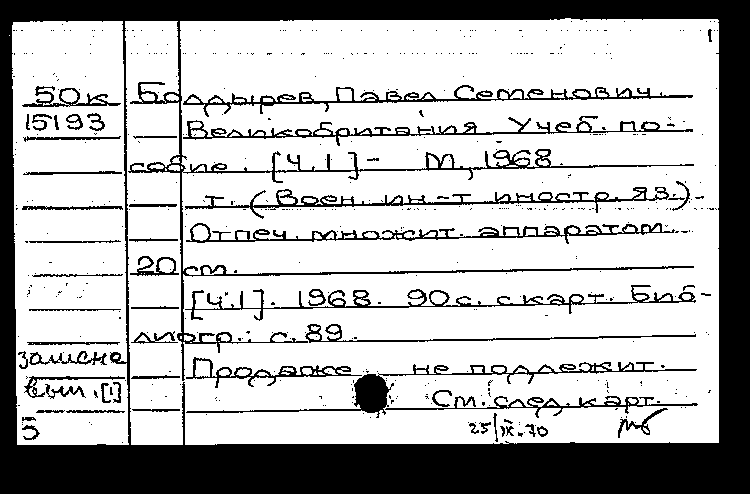 1
50к Болдырев, Павел Семенович.
15193 Великобритания. Учеб. по-
собие. [Ч.1] - М., 1968.
т. (Воен. ин-т иностр. яз.).
Отпеч. множит. аппаратом.
20 см.
[Ч.1]. 1968. 90 с. с карт. Биб-
лиогр.: с. 89.
записна
Продаже не подлежит.
вып. [1]
См. след. карт.
5 25/IX.70